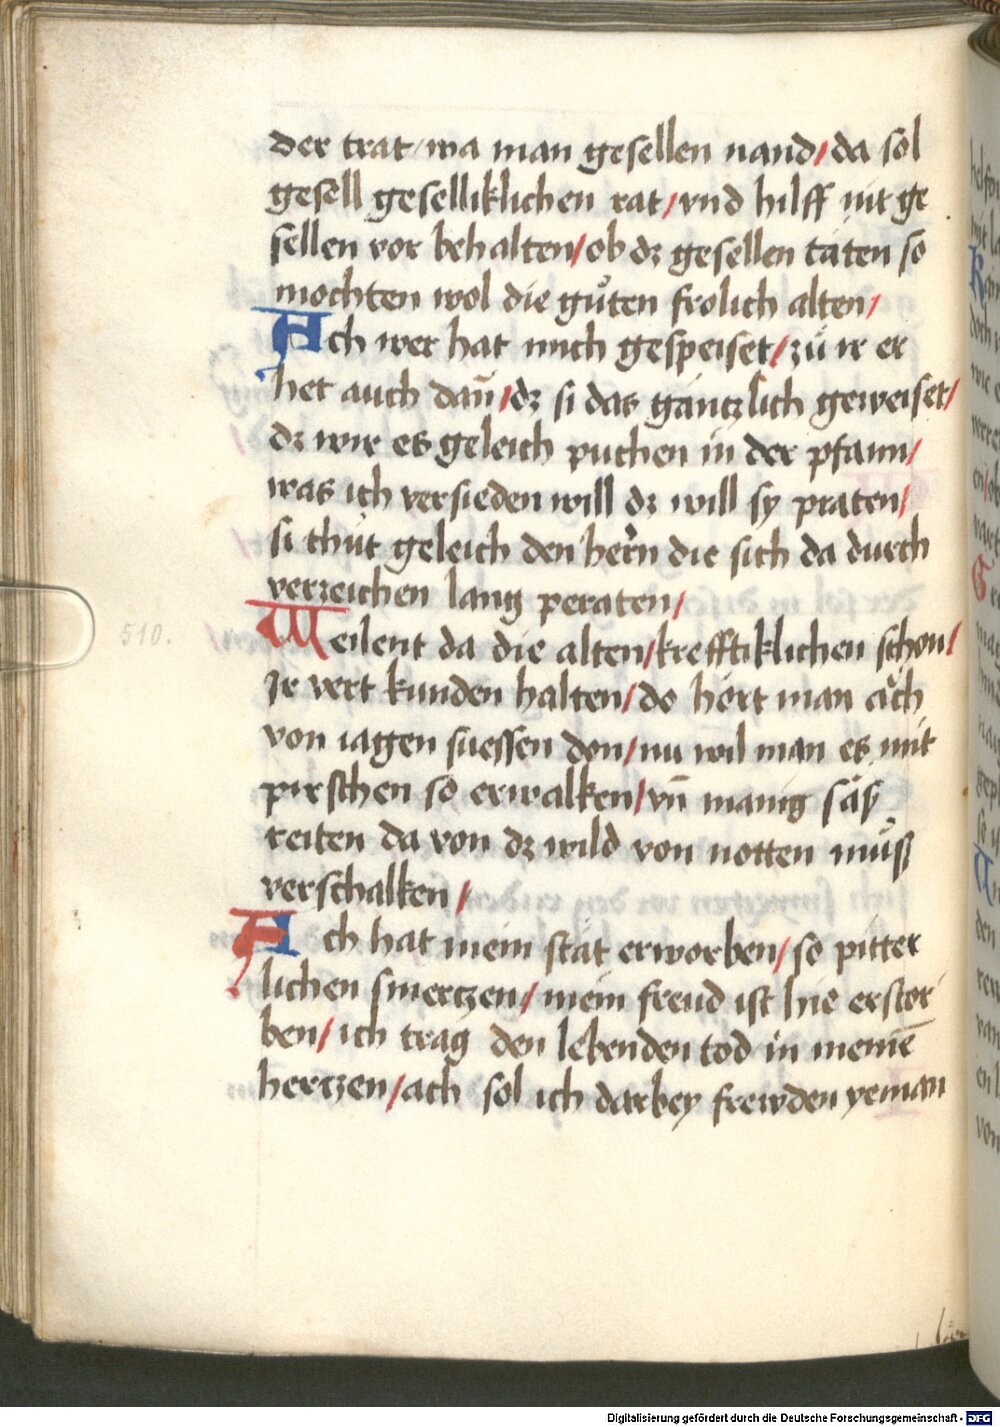 der trat / wa man gesellen nand / da sol
gesell geselliklichen rat / vnd hilff nit ge
sellen vor behalten / ob dz gesellen täten so
mochten wol die gůten frolich alten /
Ach wer hat mich gespeiset / zů ir er
het auch dañ / dz si das gäntzlich geweiset /
dz wir es geleich puchen in der pfann /
was ich versieden will dz will sy praten /
si thůt geleich den herñ die sich da durch
verzeichen lang peraten /
Weilent da die alten / krefftiklichen schon /
Ir vert kunden halten / do hört man aůch
von iagen suessen don / nu wil man es mit
pirschen so erwalken / vñ manig säß
reiten da von dz wild von notten můß
verschalken /
Ach hat mein stät erworben / so pitter
lichen smertzen / mein freud ist hie erstor
ben / ich trag den lebenden tod in meinē
hertzen / ach sol ich darbey frewden yeman
510.
Digitalisierung gefördert durch die Deutsche Forschungsgemeinschaft - DFG